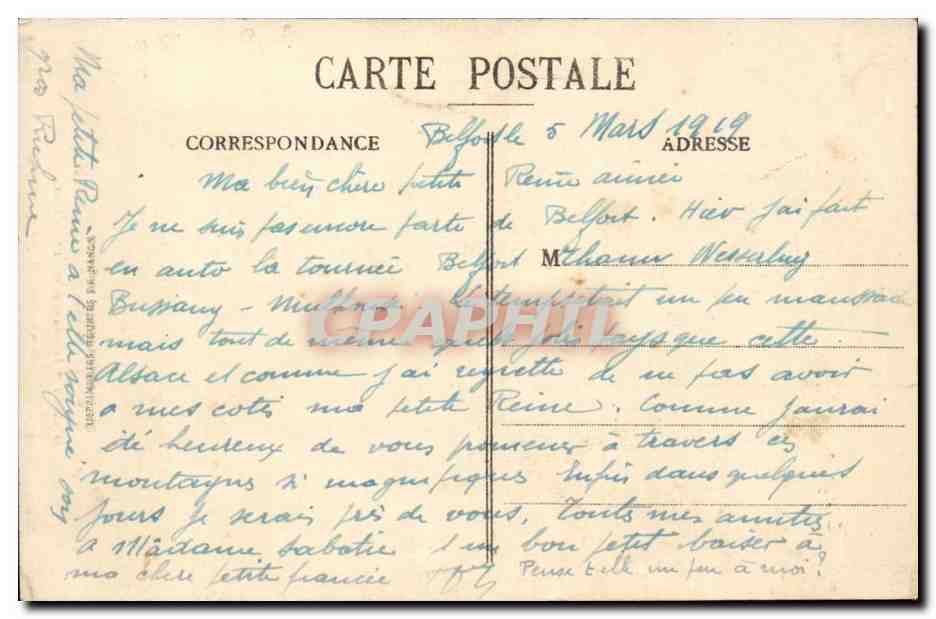 CARTE POSTALE
CORRESPONDANCE
ADRESSE
Belfort le 5 Mars 1919
Ma bien chère petite Reine aimée
Je ne suis pas encore parti de Belfort. Hier j'ai fait
en auto la tournée Belfort Thann Wesserling
M
Bussang - Mulhouse le temps était un peu maussade
mais tout de même quel joli pays que cette
Alsace et comme j'ai regretté de ne pas avoir
a mes cotés ma petite Reine. Comme j'aurai
été heureux de vous promener à travers ces
montagnes si magnifiques Enfin dans quelques
jours je serai près de vous. Toutes mes amitiés
a Madame Sabatié & un bon petit baiser à
ma chère petite fiancée
Pense t-elle un peu à moi?
Ma petite Reine a t'elle soigné son
gros Rhume
IMPRIMERIES REUNIES DE NANCY
CPAPHIL